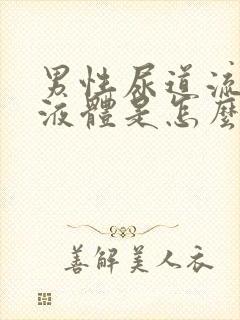 男性尿道流
液體是怎麼
善解美人衣